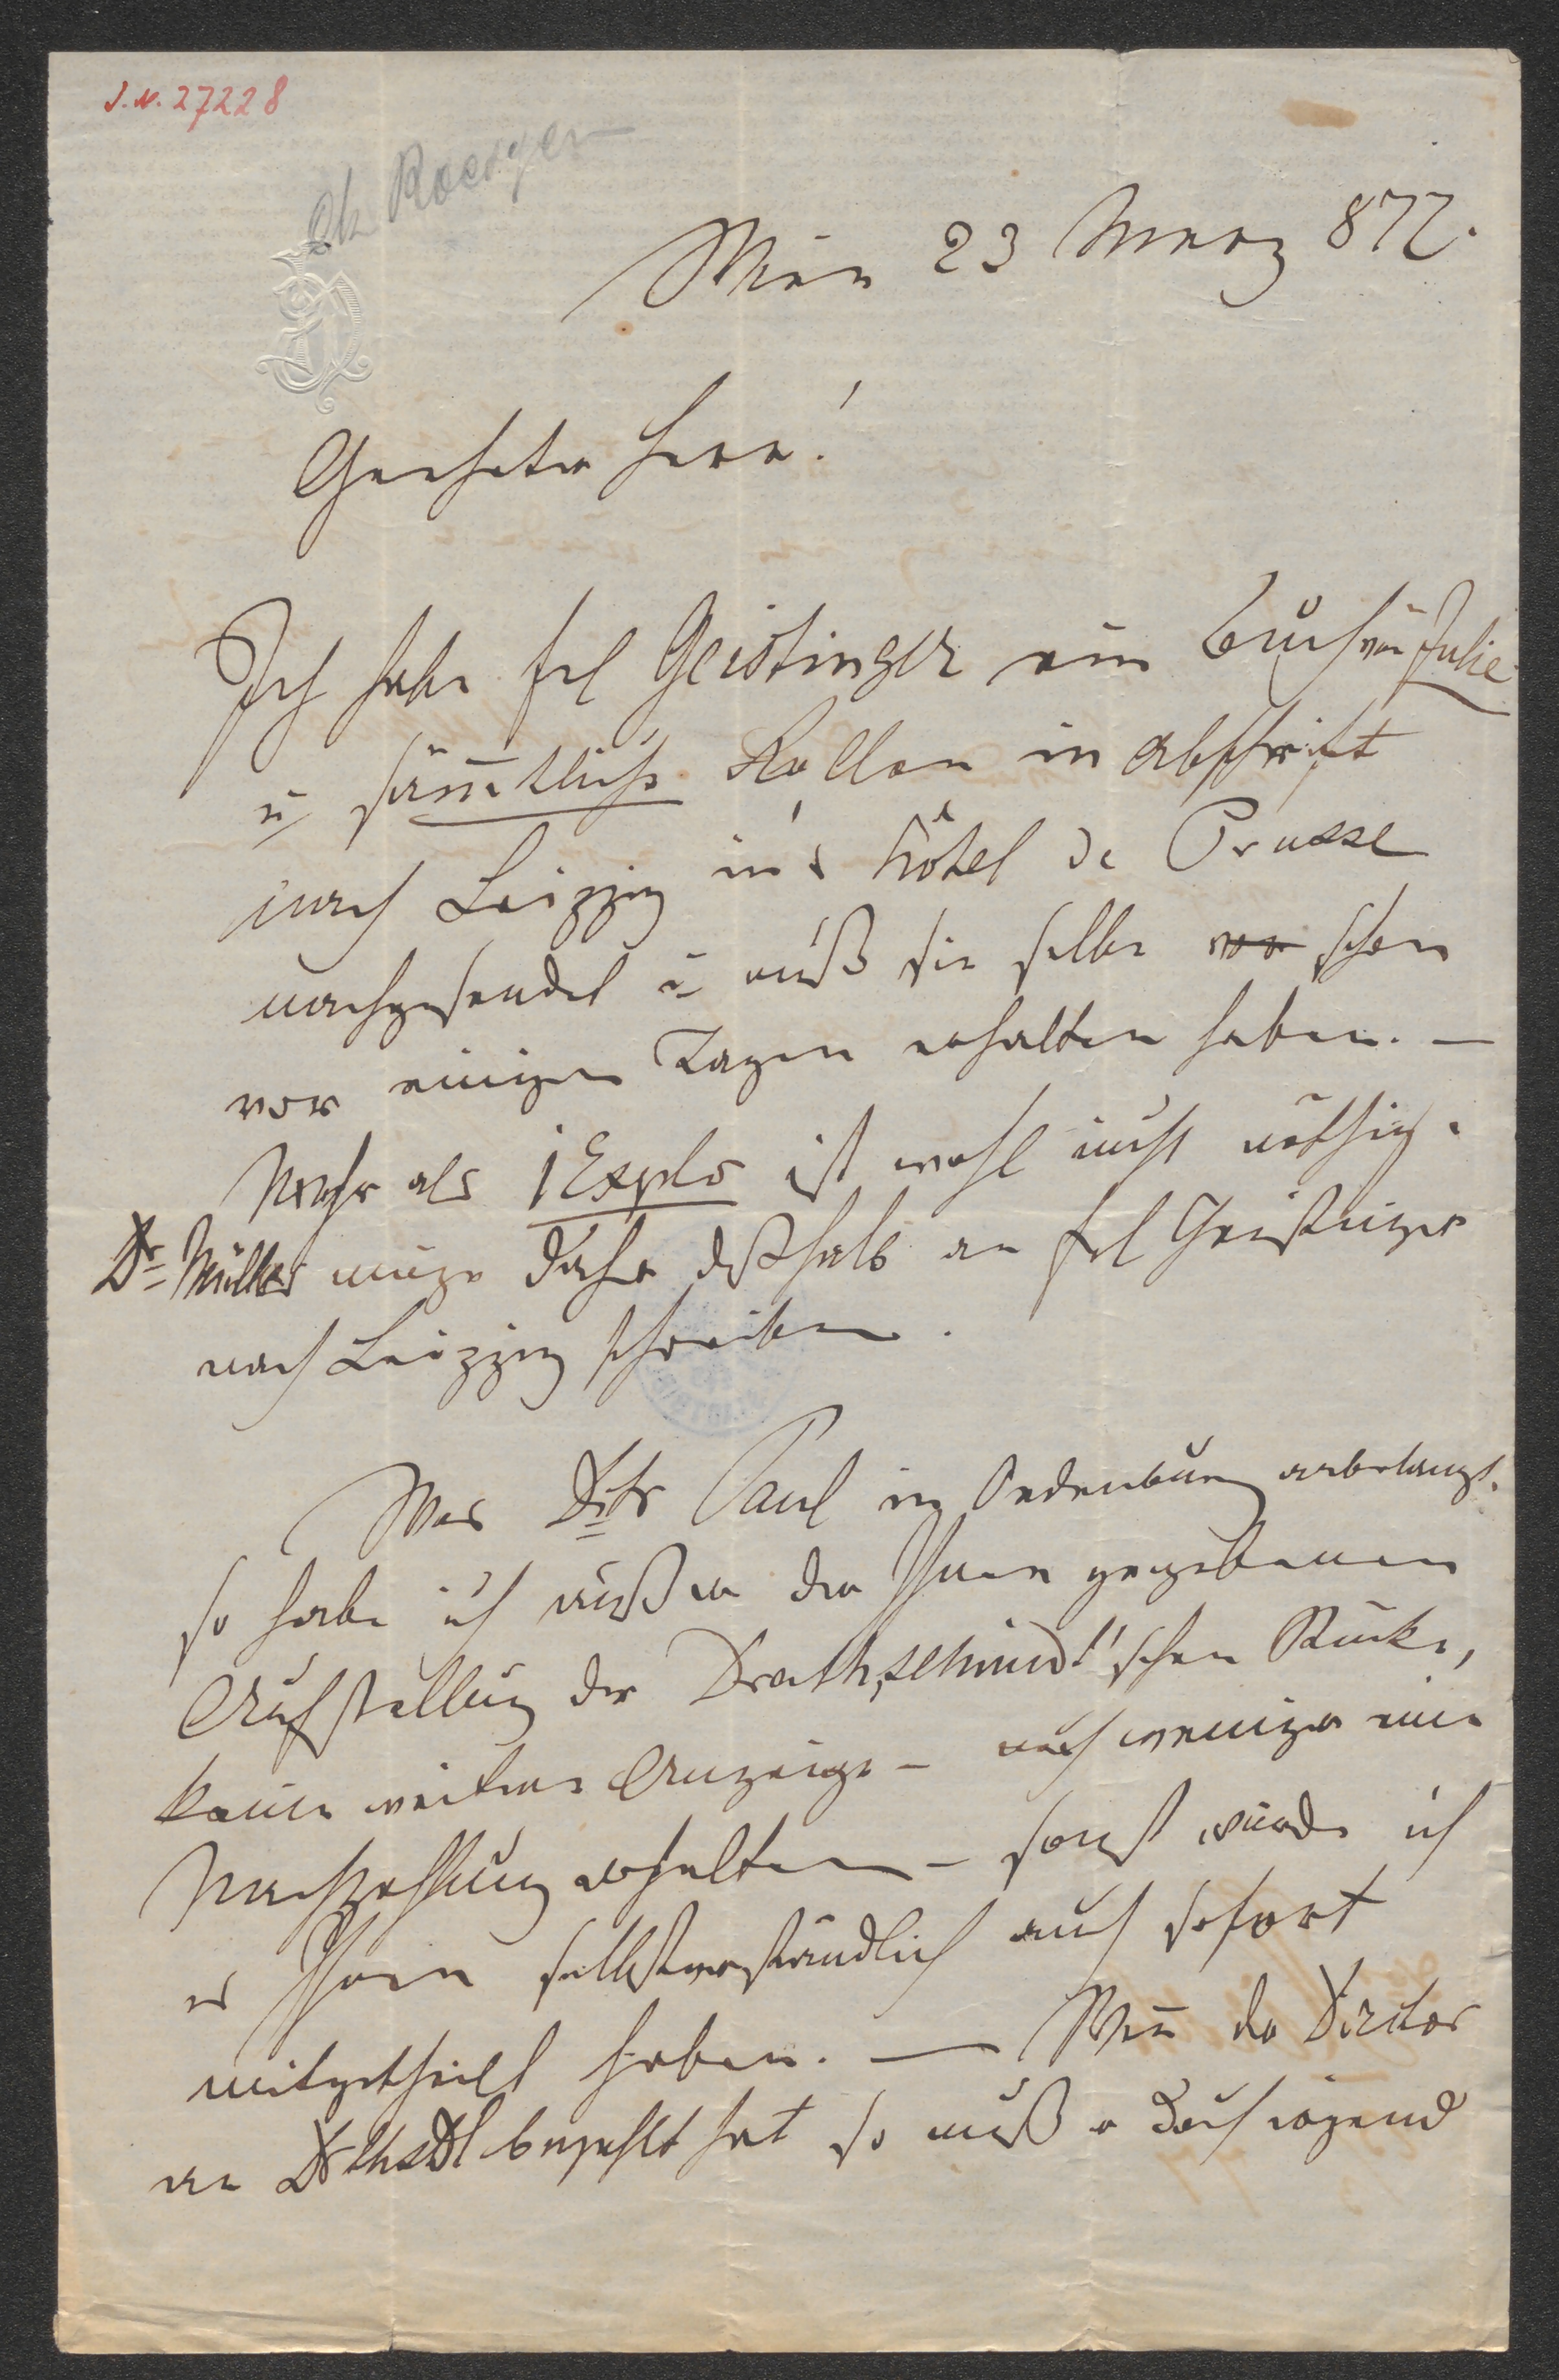 J.N. 27228
Wien 23 Maerz 877.
Geehrter Herr!
Ich habe Frl Geistinger ein Buch von Julie
u sämtliche Rollen in Abschrift
nach Leipzig in's Hôtel de Prusse
nachgesendet u muß sie selbe schon
vor einigen Tagen erhalten haben. —
Mehr als 1 Explr ist wohl nicht nöthig.
Dr Müller möge daher deßhalb an Frl Geistinger
nach Leipzig schreiben.
Was Dctr Paul in Oedenburg anbelangt,
so habe ich außer der Ihnen gegebenen
Aufstellung der Drathschmidt'schen Stücke,
keine weitere Anzeige – noch weniger eine
Nachzahlung erhalten – sonst würde ich
es Ihnen selbstverständlich auch sofort
mitgetheilt haben. — Wenn der Director
an bezahlt hat so muß er doch irgend